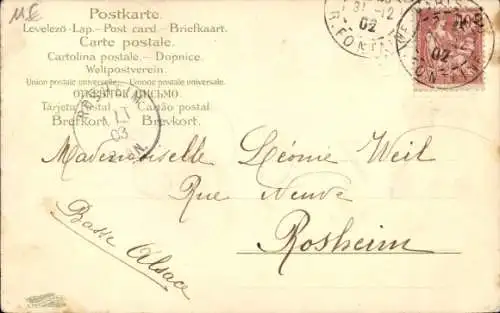 M E
Postkarte.
Levelező-Lap.—Post card—Briefkaart.
Carte postale.
Cartolina postale.—Dopnice.
Weltpostverein.
Union postale universelle.—Unione postale universale.
ОТКРЫТОЕ ПИСЬМО
Tarjeta Postal Cartão postal
Brefkort. Brevkort.
31 12
02
R. FON
02
17
03
N.
Mademoiselle Léonie Weil
Rue Neuve
Rosheim
Basse Alsace